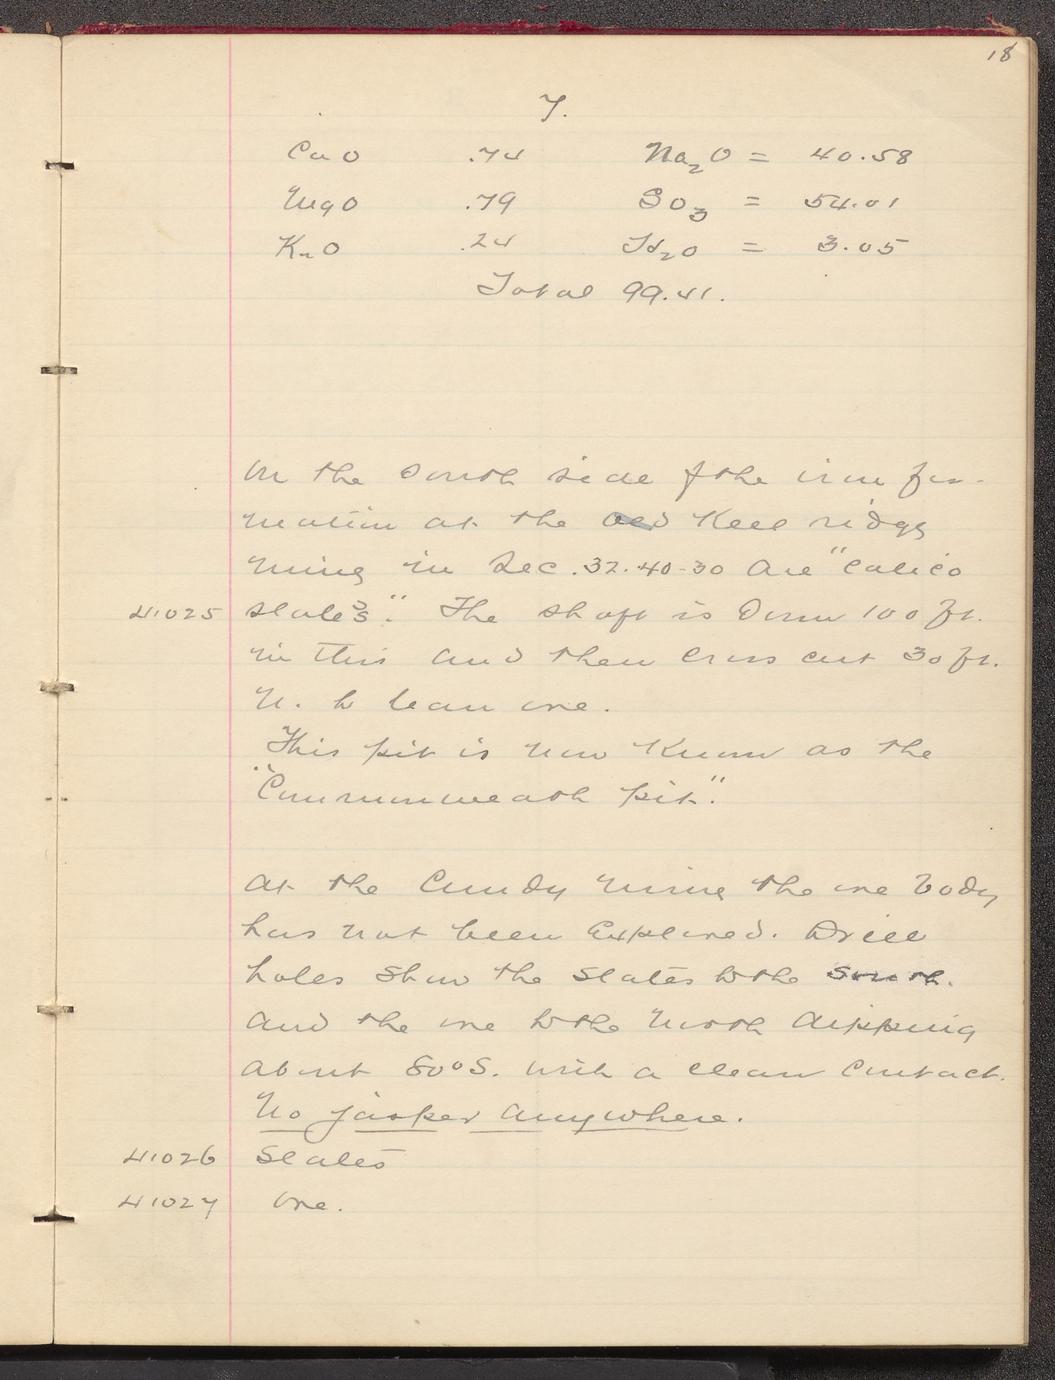 18
7.
CaO .74 Na2O = 40.58
MgO .79 SO3 = 54.01
K2O .24 H2O = 3.05
Total 99.41.
On the South side of the iron for-
mation at the old Keel ridge
mine in Sec. 32-40-30 are "Calico
41025 slates". The shaft is Down 100 ft.
in this and then Cross cut 30 ft.
N. to lean ore.
This pit is now Known as the
"Commonweath pit".
At the Cundy mine the ore body
has not been Explored. Drill
holes show the slates to the South.
and the ore to the North dipping
about 80°S. with a clean Contact.
No jasper anywhere.
41026 Slates
41027 Ore.